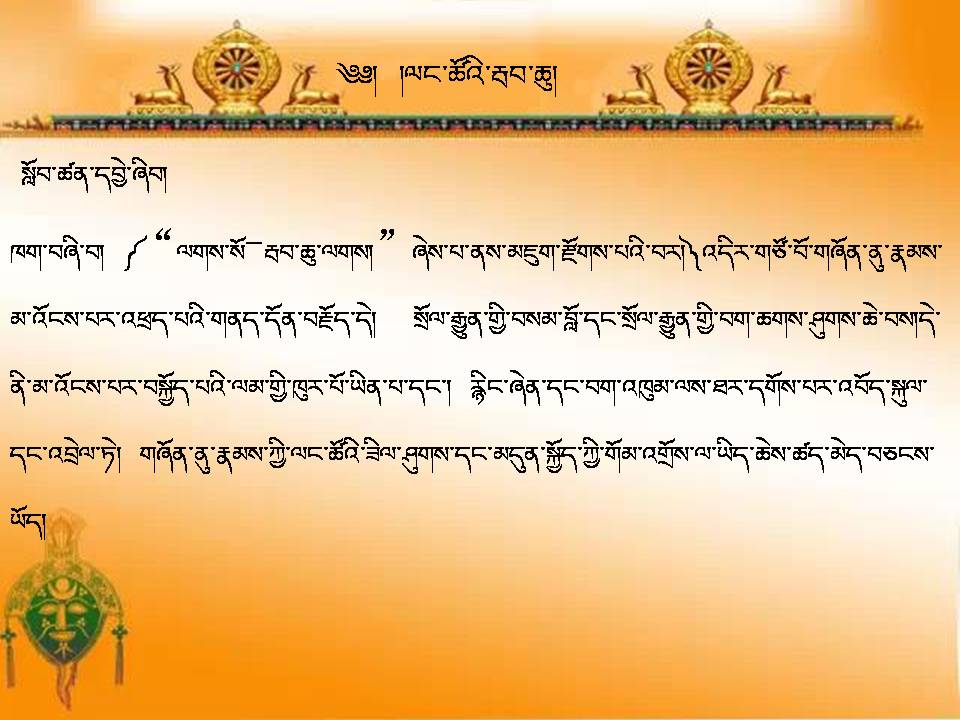 ༄༅། །ལང་ཚོའི་རྦབ་ཆུ།
སློབ་ཚན་དབྱེ་ཞིབ།
ཁག་བཞི་བ། ༼“ལགས་སོ—རྦབ་ཆུ་ལགས།” ཞེས་པ་ནས་མཇུག་རྫོགས་པའི་བར།༽འདིར་གཙོ་བོ་གཞོན་ནུ་རྣམས་
མ་འོངས་པར་འཕྲད་པའི་གནད་དོན་བརྗོད་དེ། སྲོལ་རྒྱུན་གྱི་བསམ་བློ་དང་སྲོལ་རྒྱུན་གྱི་བག་ཆགས་ཤུགས་ཆེ་བས།དེ་
ནི་མ་འོངས་པར་བསྐྱོད་པའི་ལམ་གྱི་ཁུར་པོ་ཡིན་པ་དང་། རྙིང་ཞེན་དང་བག་འཁུམ་ལས་ཐར་དགོས་པར་འབོད་སྐུལ་
དང་འབྲེལ་ཏེ། གཞོན་ནུ་རྣམས་ཀྱི་ལང་ཚོའི་ཟིལ་ཤུགས་དང་མདུན་སྐྱོད་ཀྱི་གོམ་འགྲོས་ལ་ཡིད་ཆེས་ཚད་མེད་བཅངས་
ཡོད།